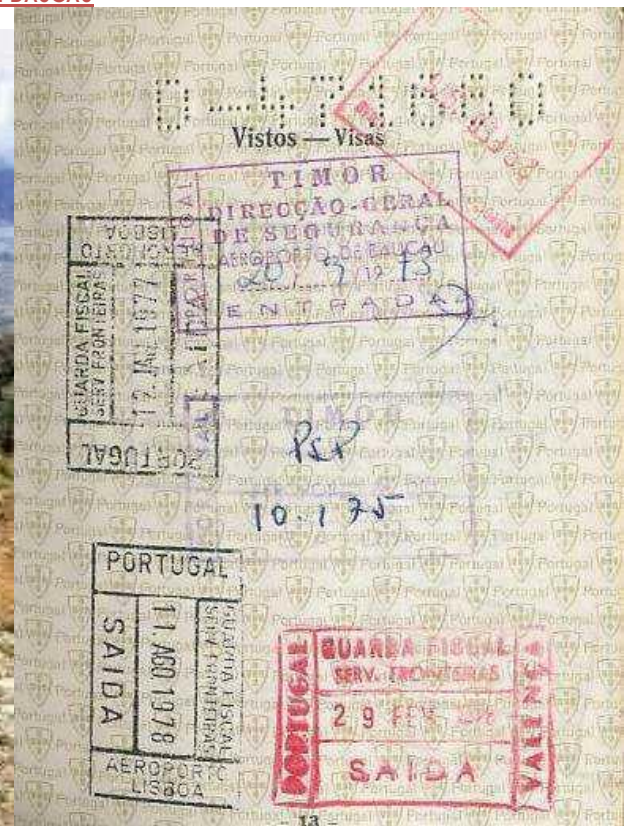 Vistos — Visas
TIMOR
DIRECÇÃO-GERAL
DE SEGURANÇA
AEROPORTO DE BAUCAU
20 / 9 / 19 73
ENTRADA
PORTUGAL
AEROPORTO
LISBOA
GUARDA FISCAL
SERV. FRONTEIRAS
1977
PORTUGAL
TIMOR
PSP
10.1 75
PORTUGAL
SAIDA
11. AGO 1978
GUARDA FISCAL
SERV. FRONTEIRAS
AEROPORTO
LISBOA
PORTUGAL
GUARDA FISCAL
SERV. FRONTEIRAS
29 FEV.
SAIDA
VALENÇA
- 13 -